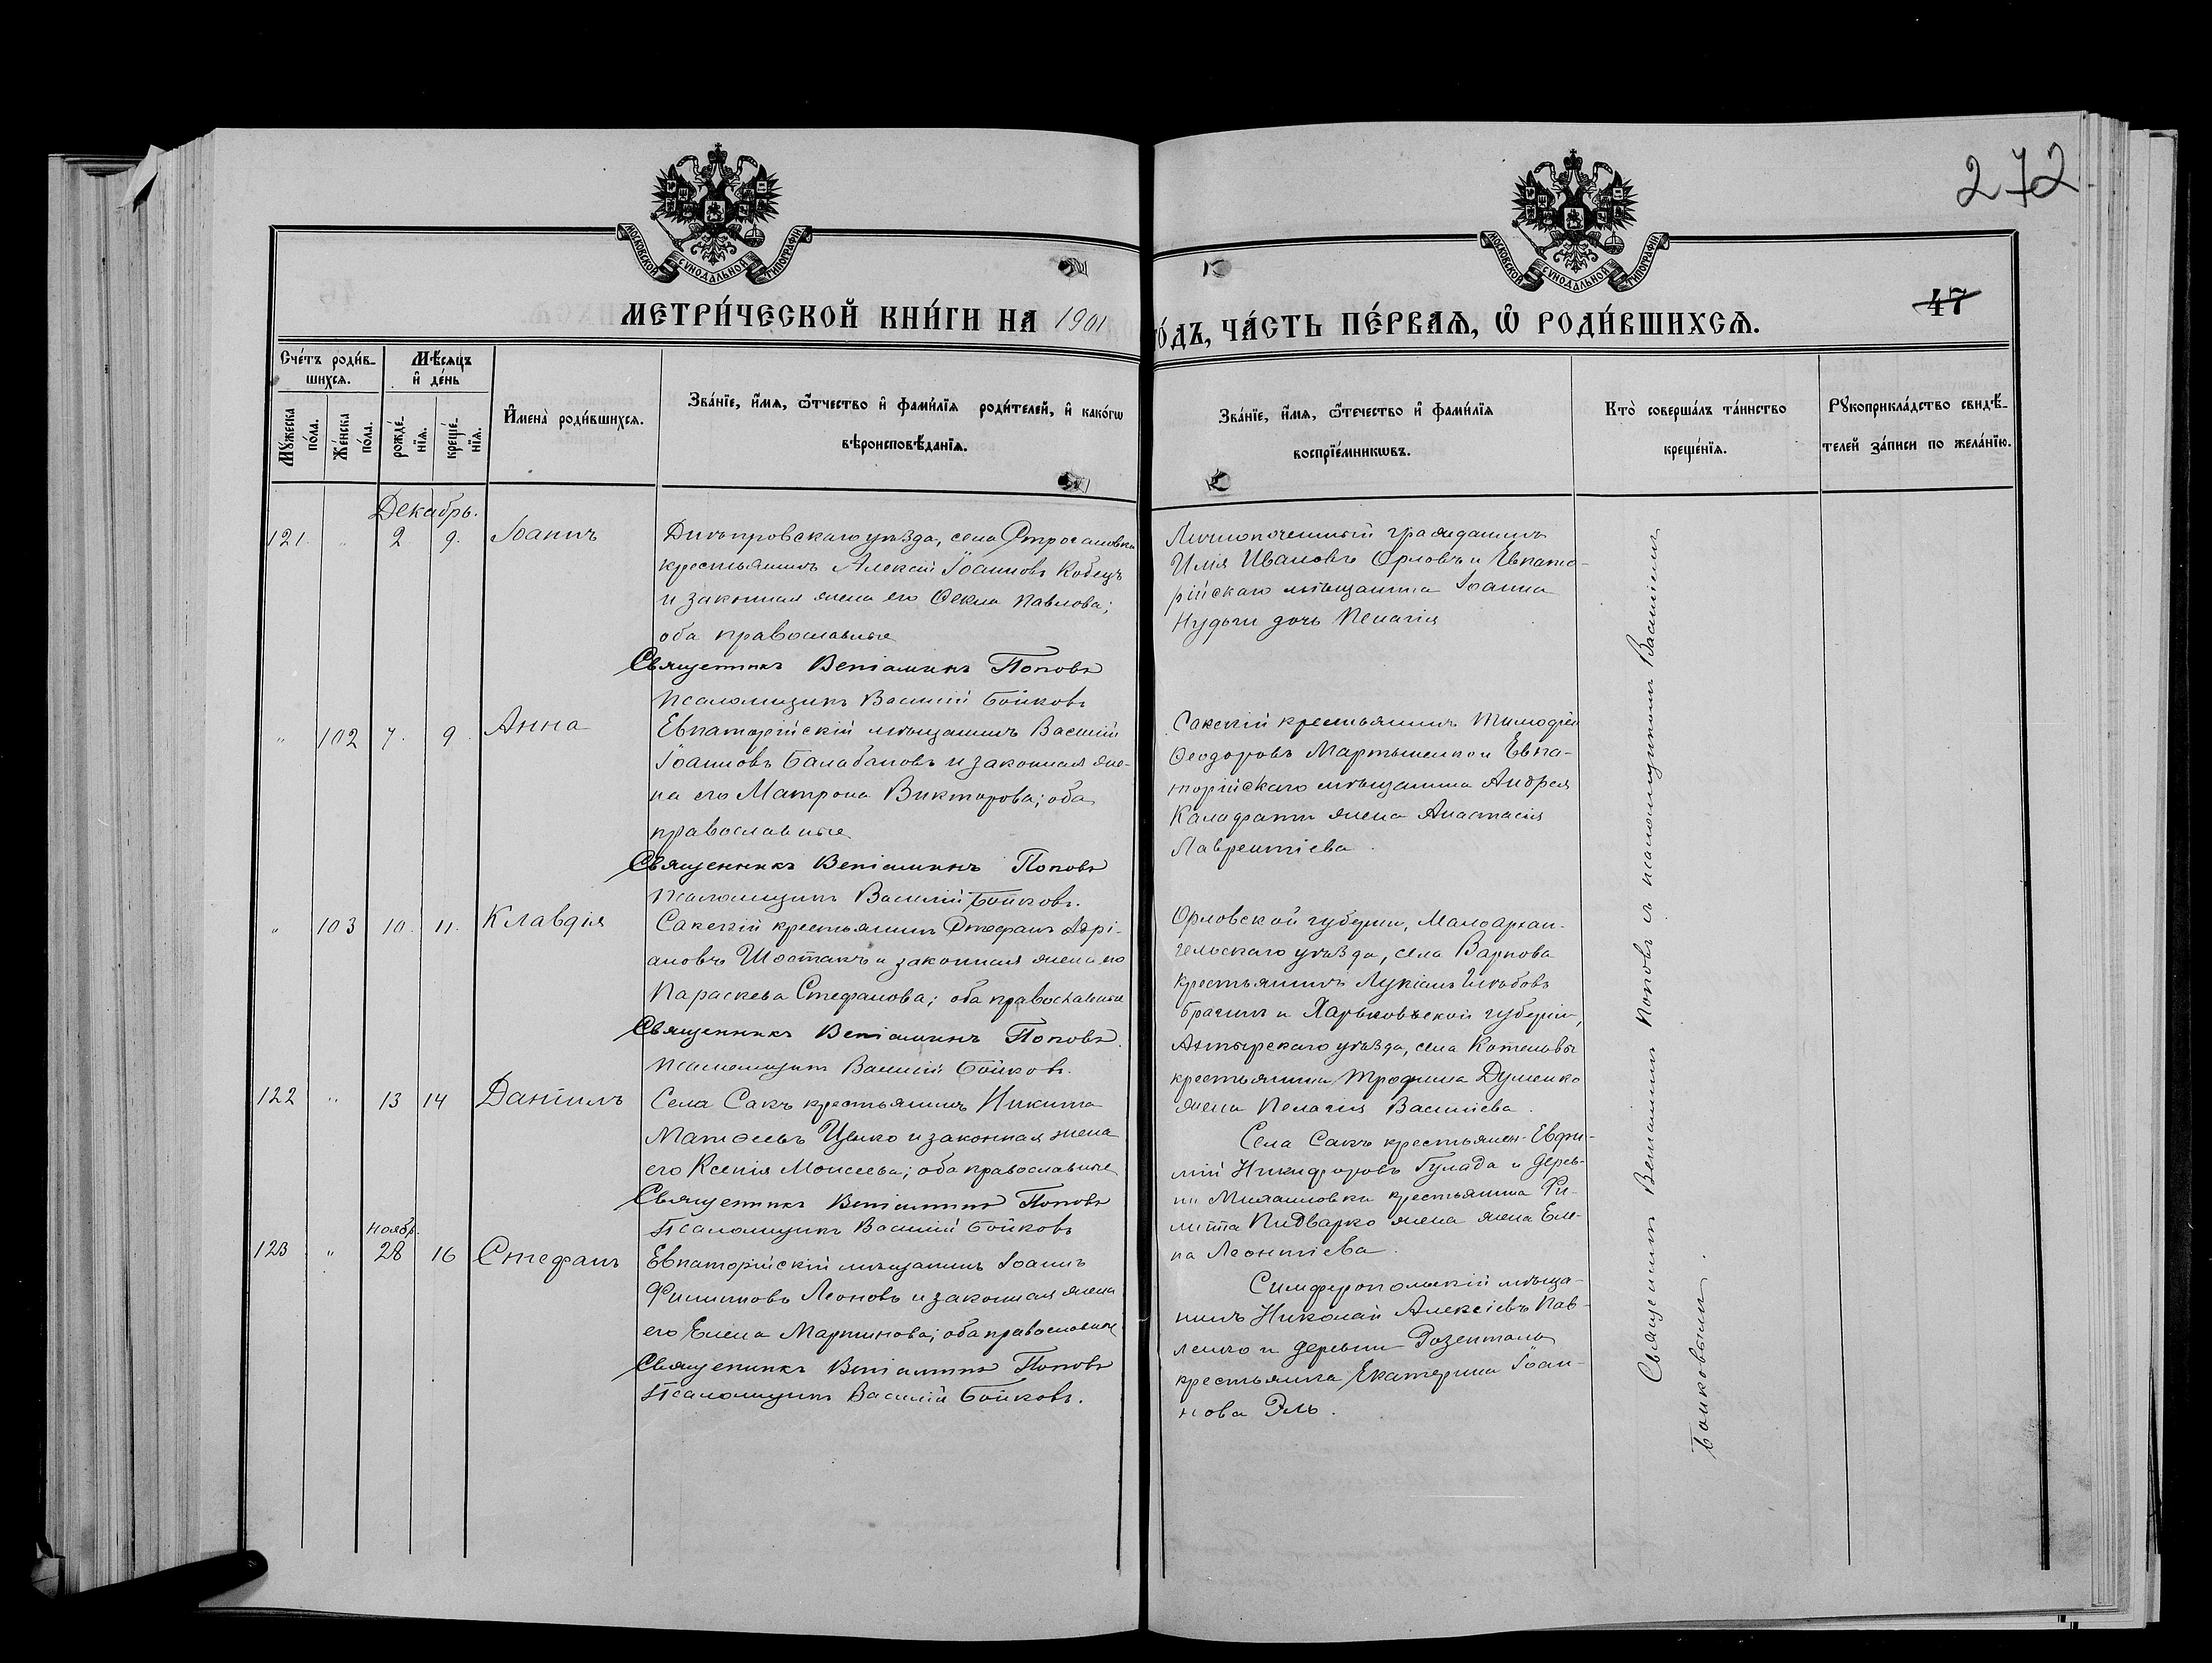 272
МОСКОВСКОЙ СѴНОДАЛЬНОЙ ТИПОГРАФІИ
МОСКОВСКОЙ СѴНОДАЛЬНОЙ ТИПОГРАФІИ
МЕТРИ́ЧЕСКОЙ КНИ́ГИ НА 1901
О́ДЪ, ЧА́СТЬ ПЕ́РВАЯ, Ѽ РОДИ́ВШИХСЯ.
47
Сче́тъ роди́в-
шихсѧ.
Мѣ́сѧцъ
и҆ де́нь
Мꙋ́жеска по́ла.
Же́нска по́ла.
рожде́-
нїѧ.
креще́-
нїѧ.
И҆мена̀ роди́вшихсѧ.
Зва́нїе, и҆́мѧ, ѻ҆́тчество и҆ фами́лїѧ роди́телей, и҆ како́гѡ
вѣроисповѣ́данїѧ.
Зва́нїе, и҆́мѧ, ѻ҆те́чество и҆ фами́лїѧ
воспрїе́мникѡвъ.
Кто̀ соверша́лъ та́инство
креще́нїѧ.
Рꙋкоприкла́дство свидѣ́-
телей за́писи по жела́нїю.
Декабрь.
121. " 2 9. Іоаннъ
Днѣпровскаго уѣзда, села
крестьянинъ Алексій Іоанновъ Кобецъ
и законная жена его Ѳекла Павлова;
оба православные
Священникъ Веніаминъ Поповъ
Псаломщикъ Василій Бойковъ
Личнопочетный гражданинъ
Илія Ивановъ Орловъ и Евпато-
рійскаго мѣщанина Іоанна
Нудьги дочь Пелагія
" 102 7. 9 Анна
Евпаторійскій мѣщанинъ Василій
Іоанновъ Балабановъ и законная же-
на его Матрона Викторова; оба
православные
Священникъ Веніаминъ Поповъ
Псаломщикъ Василій Бойковъ.
Сакскій крестьянинъ Тимофей
Ѳеодоровъ Мартыненко и Евпа-
торійскаго мѣщанина Андрея
Калафати жена Анастасія
Лаврентіева.
" 103 10. 11. Клавдія
Сакскій крестьянинъ Стефанъ Адрі-
ановъ Шостакъ и законная жена его
Параскева Стефанова; оба православные
Священникъ Веніаминъ Поповъ.
Псаломщикъ Василій Бойковъ.
Орловской губерніи, Малоархан-
гельскаго уѣзда, села
крестьянинъ Лукіанъ
Брагинъ и Харьковской губерніи,
Ахтырскаго уѣзда, села Котельвы
крестьянина Трофима Думенко
жена Пелагія Василіева.
122 " 13 14 Даніилъ
Села Сакъ крестьянинъ Никита
Матѳеевъ Цыко и законная жена
его Ксенія Моисеева; оба православные
Священникъ Веніаминъ Поповъ
Псаломщикъ Василій Бойковъ
Села Сакъ крестьянинъ Евфи-
мій Никифоровъ Гулада и дерев-
ни Михайловки крестьянина Фи-
липпа Пидварко жена жена Еле-
на Леонтіева.
Ноябр.
123 " 28 16 Стефанъ
Евпаторійскій мѣщанинъ Іоаннъ
Филипповъ Леоновъ и законная жена
его Елена Мартинова; оба православные
Священникъ Веніаминъ Поповъ
Псаломщикъ Василій Бойковъ.
Симферопольскій мѣща-
нинъ Николай Алексіевъ Пав-
ленко и деревни Розенталь
крестьянка Екатерина Іоан-
нова Эль.
Священникъ Веніаминъ Поповъ съ псаломщикомъ Василіемъ
Бойковымъ.